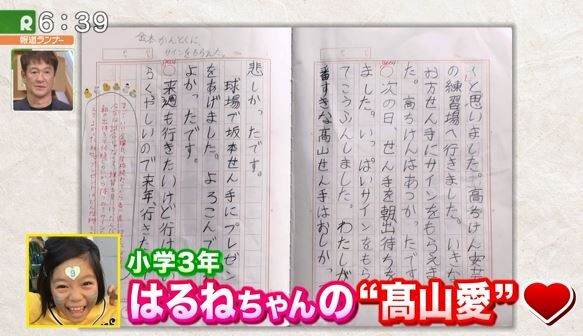 R 6:39
報道ランナー
と思いました。高ちけん安芸
の練習場へ行きました。いきな
お方せん手にサインをもらえま
た。高ちけんはあつかったです
○次の日、せん手を朝出待ち
ました。いっぱいサインをもら
てこうふんしました。わたしが
番すきな高山せん手はおしか
金本かんとくに、
サインをもらえた。
悲しかったです。
球場で坂本せん手にプレゼン
をあげました。よろこんで
よかったです。
○来週も行きたいけど行け
くやしいので来年、行きた
小学3年
はるねちゃんの“髙山愛”